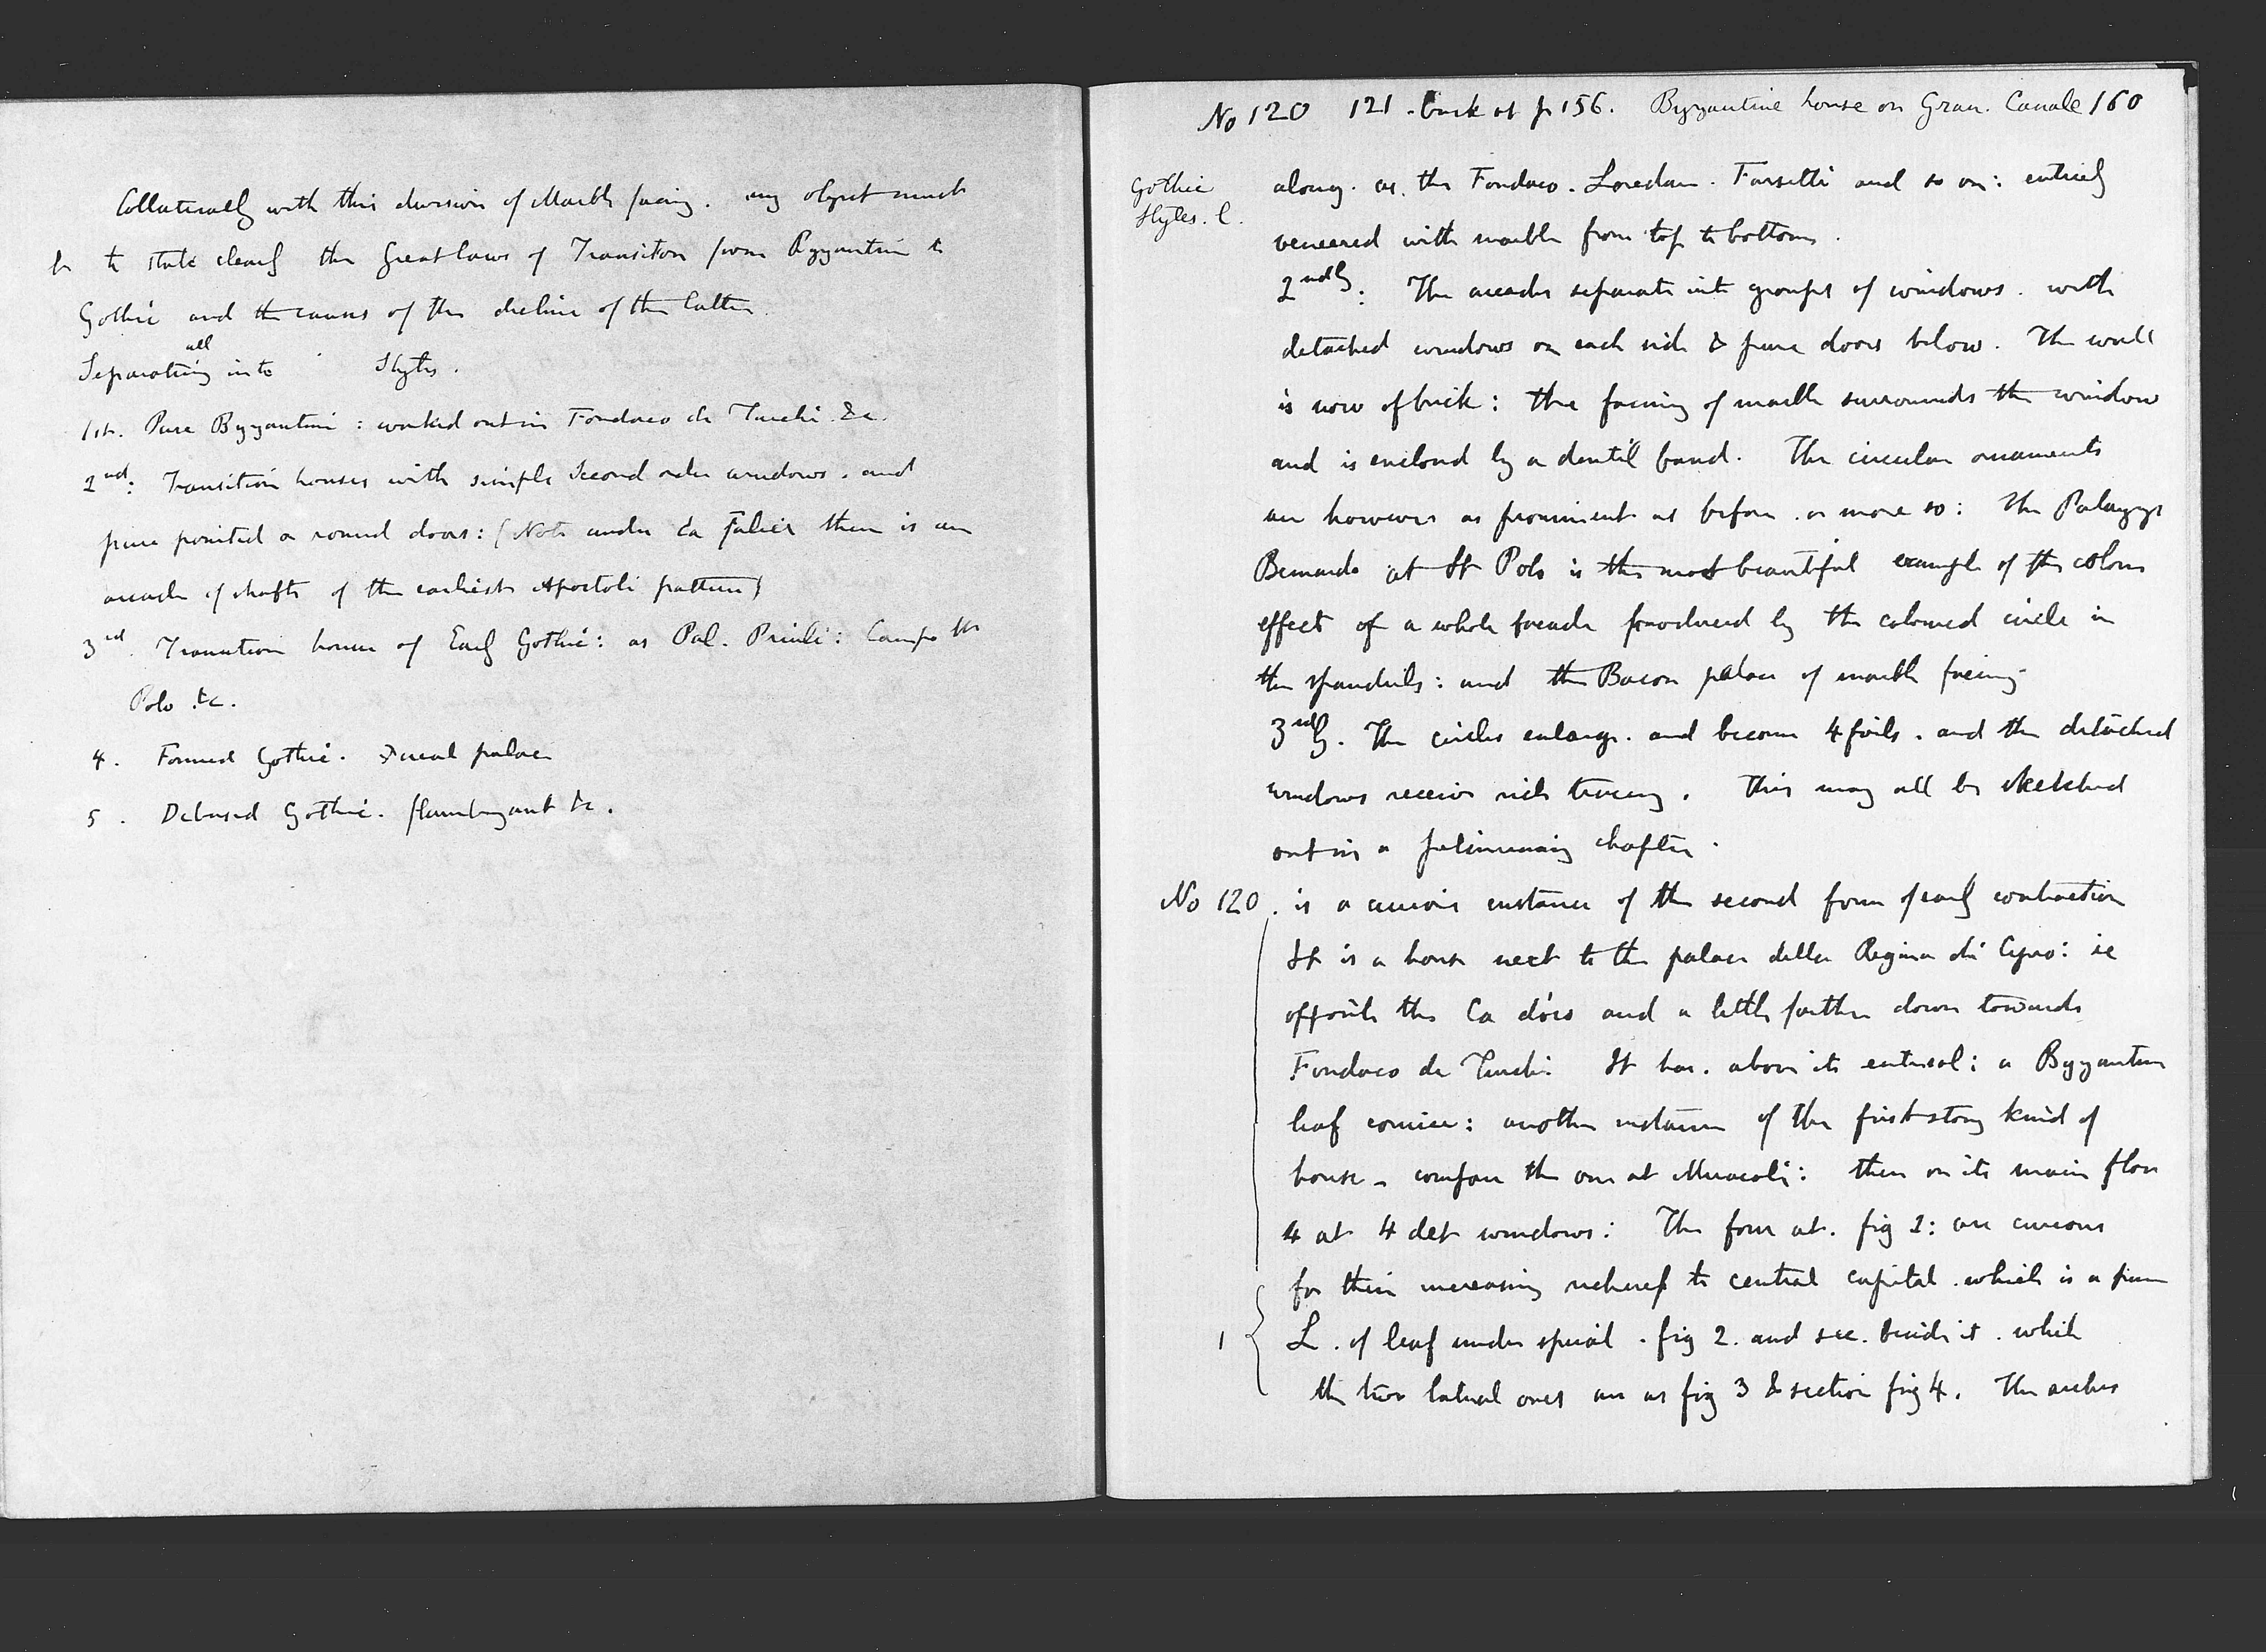 Collaterally with this division of Marble facing. my object must
be to state clearly the Great laws of Transition from Byzantine to
Gothic and the causes of the decline of the latter.
all
Separating into Styles.
1st. Pure Byzantine: worked out in Fondaco de Turchi. &c.
2nd: Transition houses with simple Second order windows. and
pure pointed or round doors: (Note under Ca Falier there is an
arcade of shafts of the earliest Apostoli pattern)
3rd. Transition house of Early Gothic: as Pal. Priuli: Campo St
Polo &c.
4. Formed Gothic. Ducal palace
5. Debased Gothic. flamboyant &c.
No 120 121. back of p 156. Byzantine house on Gran. Canale 160
Gothic
Styles. l.
along. as. the Fondaco. Loredan. Farsetti and so on: entirely
veneered with marble from top to bottom.
2ndly: The arcades separate into groups of windows. with
detached windows on each side & pure doors below. The wall
is now of brick: the facing of marble surrounds the window
and is enclosed by a dentil band. The circular ornaments
are however as prominent as before. or more so: the Palazzo
Bernardo at St Polo is the most beautiful example of the colour
effect of a whole facade produced by the coloured circle in
the spandrils: and the Bacon palace of marble facing
3rdly. The circles enlarge. and become 4foils. and the detached
windows receive rich tracery. This may all be sketched
out in a preliminary chapter.
No 120. is a curious instance of the second form of early contraction
It is a house next to the palace della Regina di Cypro: ie
opposite the Ca d'oro and a little farther down towards
Fondaco de Turchi. It has. above its entresol: a Byzantine
leaf cornice: another instance of the first story kind of
house - compare the one at Miracoli: then on its main floor
4 at 4 det windows: The four at. fig 1: are curious
for their increasing richness to central capital. which is a pure
1 L. of leaf under spiral. fig 2. and sec. beside it. while
the two lateral ones are as fig 3 & section fig 4. The arches